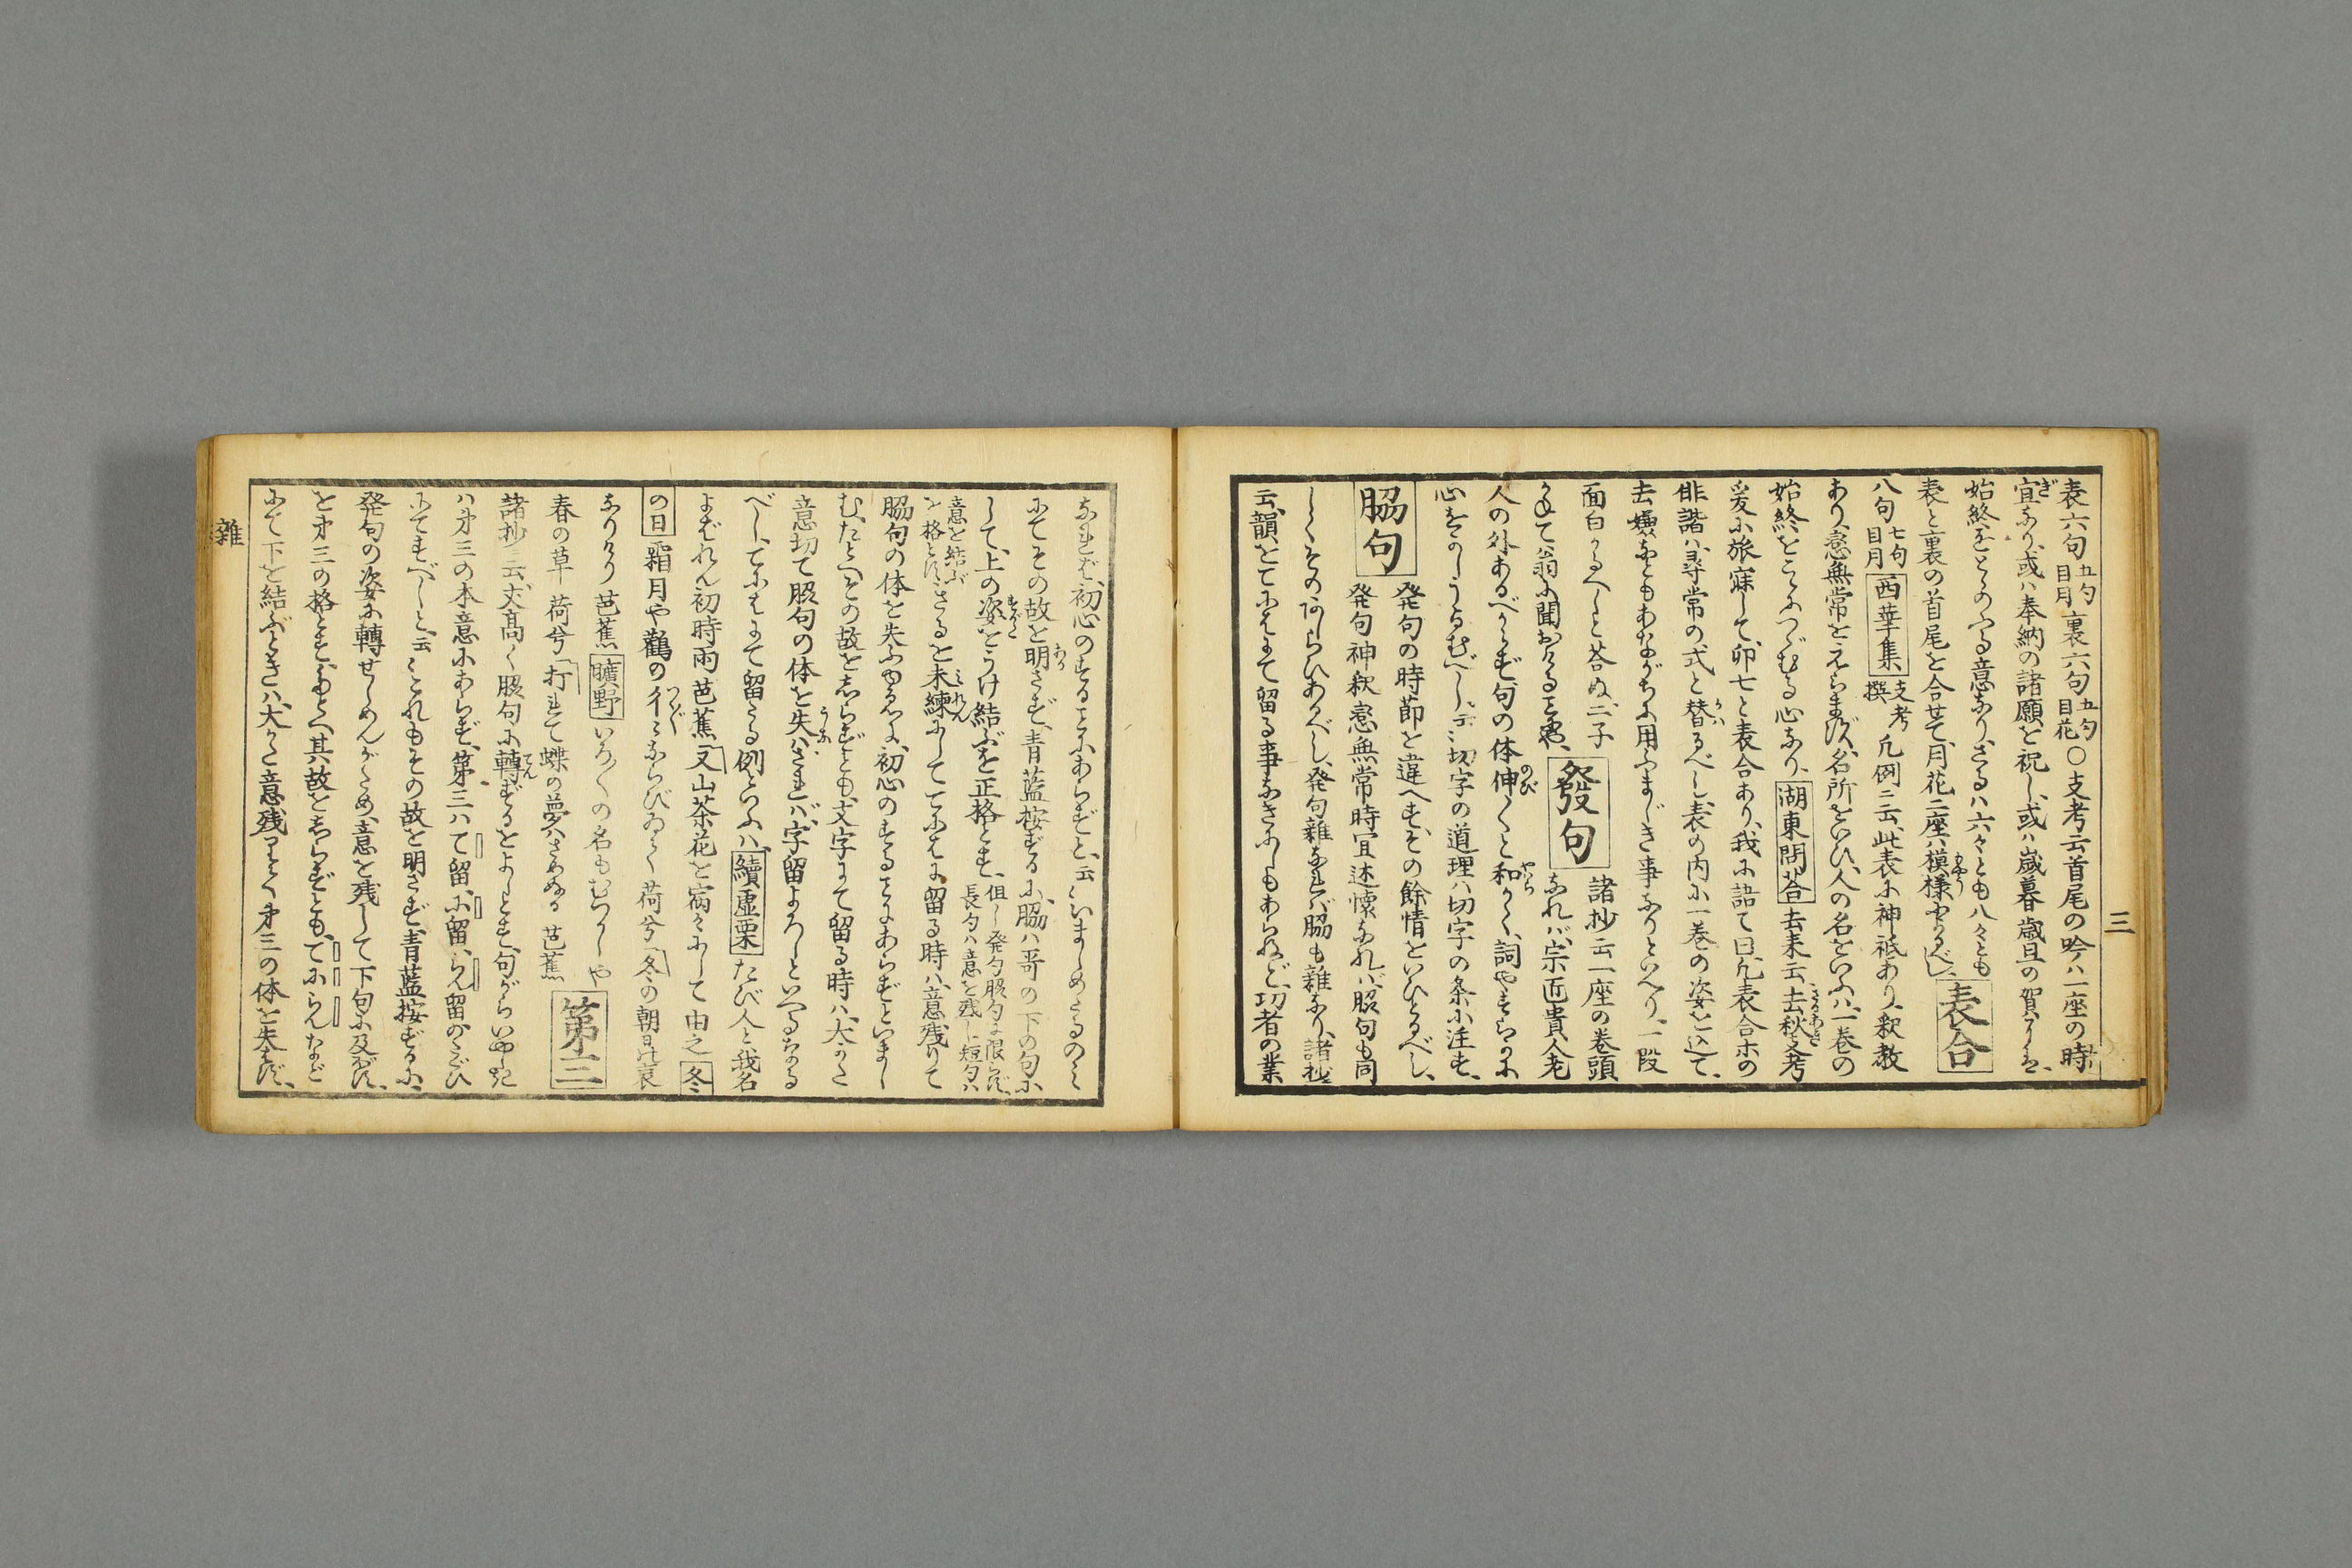 三
表六句五句目月裏六句五句目花〇支考云首尾の吟ハ一座の時
宜ぎなり、或ハ奉納の諸願を祝し、或ハ歳暮歳旦の賀なれば、
始終をとゝのふる意なり、さるハ六々とも八々とも
表と裏の首尾を合せて、月花二座ハ模様やうなるべし、表合
八句七句目月西華集支考撰凡例ニ云、此表ニ神祇あり、釈教
あり、恋無常をえらまず、名所をいひ、人の名をいふハ、一巻の
始終をこゝにつゞむる心なり、湖東問荅去来云、去秋さるあき支考
爰に旅寐して、卯七と表合あり、我に語て曰、凡表合ホの
俳諧ハ、尋常の式と替かハるべし、表の内に一巻の姿を込て、
去嫌などもあながちに用ふまじき事なりといへり、一段
面白かるべしと荅ぬ、二子
發句
諸抄云一座の巻頭
なれバ、宗匠貴人老
人の外あるべからず句の体伸のび〱と和やハらかく、詞やすらかに
心をのうるむべし云〻切字の道理ハ切字の条に注す、
脇句
発句の時節と違へず、その餘情をいひとるべし、
発句神釈恋無常時宜述懐なれバ、脇句も同
しくその
あしらひあるべし、発句雑なれバ脇も雑なり、諸抄
云、韻、をてにはにて留る事なきにしもあらねど、功者の業
なれば、初心のすることにあらずと、云〻いましめたるのミ
にてその故を明あかさず、青藍按ずるに、脇ハ哥の下の句に
して、上の姿すがたをうけ結ぶを正格とす、但し発句脇句に限らず、長句ハ意を残し短句ハ
意を結ぶを格とす、さるを未練みれんにしててにはに留る時ハ、意残りて
脇句の体を失ふゆゑに、初心のすることにあらずといまし
む、たとへその故をしらずとも、文字にて留る時ハ、大かた
意切て脇句の体を失うしなハざれバ、字留よろしといへるなる
べし、てにはにて留たる例といふハ、續虚栗たび人と我名
よばれん初時雨芭蕉「又山茶花を宿〱にして由之冬
の日霜月や鸛の彳つく〲ならびゐて荷兮「冬の朝日の哀
なりけり芭蕉曠野いろ〱の名もむつかしや
春の草荷兮「打れて蝶の夢ハさめぬる芭蕉
第三
諸抄ニ云、丈高く脇句に轉てんずるをよしとす、句がらいやしき
ハ第三の本意にあらず、第三ハて留、に留、らん留のたぐひ
にてすべしと、云〻これもその故を明さず、青藍按ずるに、
発句の姿に轉せしめんがため、意を残して下句に及ぼす、
を第三の格とす、たとへ其故をしらずとも、てにらんなど
にて下を結ぶときハ、大かた意残りて、第三の体を失はず、
雑